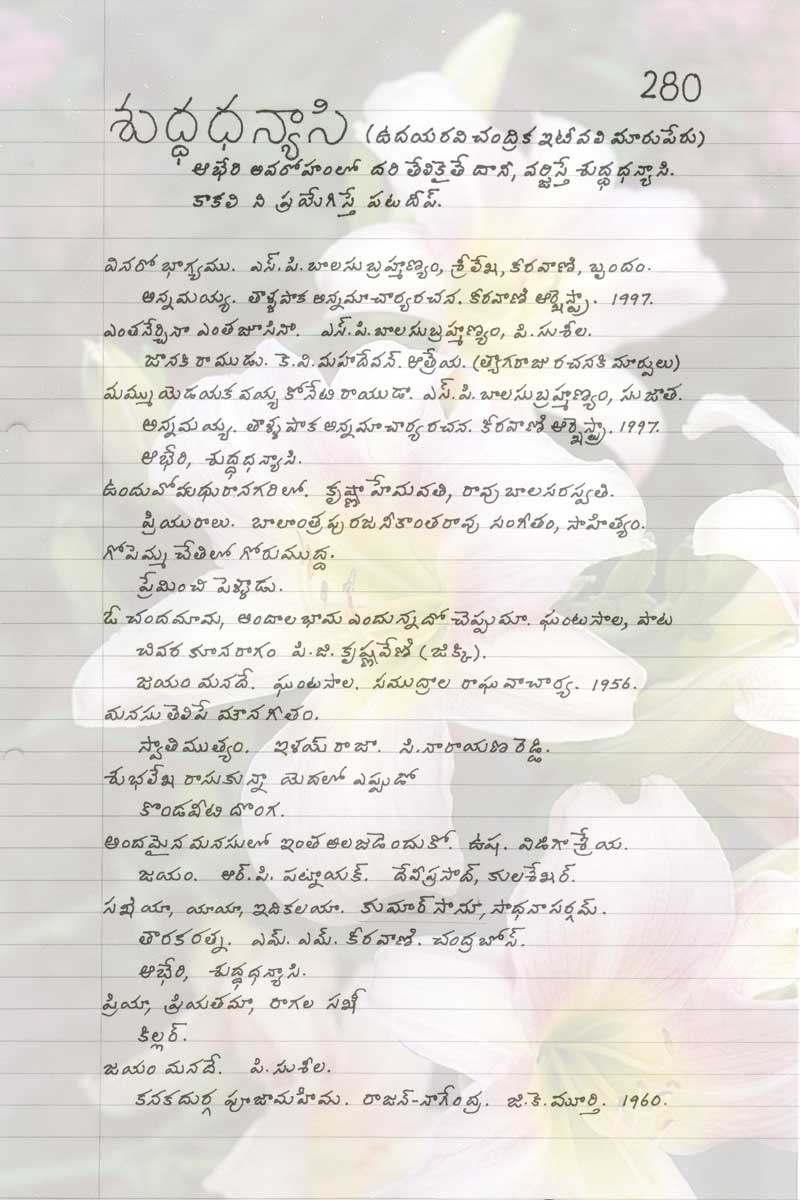 280
శుద్ధధన్యాసి (ఉదయరవిచంద్రిక ఇటీవలి మారుపేరు)
ఆభేరి అవరోహంలో దరి తేలికైతే దానీ, వర్జిస్తే శుద్ధధన్యాసి.
కాకలి ని ప్రయోగిస్తే పటదీప్.
వినరో భాగ్యము. ఎస్.పి.బాలసుబ్రహ్మణ్యం, శ్రీలేఖ, కీరవాణి, బృందం.
అన్నమయ్య. తాళ్ళపాక అన్నమాచార్యరచన. కీరవాణి ఆర్కెస్ట్రా. 1997.
ఎంతనేర్చినా ఎంతజూసినా. ఎస్.పి.బాలసుబ్రహ్మణ్యం, పి.సుశీల.
జానకి రాముడు. కె.వి.మహదేవన్. ఆత్రేయ. (త్యాగరాజు రచనకి మార్పులు)
మమ్ము యెడయక వయ్య కోనేటి రాయుడా. ఎస్.పి.బాలసుబ్రహ్మణ్యం, సుజాత.
అన్నమయ్య. తాళ్ళపాక అన్నమాచార్యరచన. కీరవాణి ఆర్కెస్ట్రా. 1997.
ఆభేరి, శుద్ధధన్యాసి.
ఉందువో మధురానగరిలో. కృష్ణా హేమవతి, రావు బాలసరస్వతి.
ప్రియురాలు. బాలాంత్రపు రజనీకాంతరావు సంగీతం, సాహిత్యం.
గోపెమ్మ చేతిలో గోరుముద్ద.
ప్రేమించి పెళ్ళాడు.
ఓ చందమామ, అందాల భామ ఎందున్నదో చెప్పుమా. ఘంటసాల, పాట
చివర కూనరాగం పి.జి. కృష్ణవేణి (జిక్కి).
జయం మనదే. ఘంటసాల. సముద్రాల రాఘవాచార్య. 1956.
మనసు తెలిపే మౌనగీతం.
స్వాతిముత్యం. ఇళయ్ రాజా. సి.నారాయణ రెడ్డి.
శుభలేఖ రాసుకున్నా యెదలో ఎప్పుడో
కొండవీటి దొంగ.
అందమైన మనసులో ఇంత అలజడెందుకో. ఉష. విడిగా శ్రేయ.
జయం. ఆర్.పి. పట్నాయక్. దేవీప్రసాద్, కులశేఖర్.
సఖియా, యాయా, ఇదికలయా. కుమార్ సానూ, సాధనాసర్గమ్.
తారకరత్న. ఎమ్. ఎమ్. కీరవాణి. చంద్రబోస్.
ఆభేరి, శుద్ధధన్యాసి.
ప్రియా, ప్రియతమా, రాగల సఖీ
కిల్లర్.
జయం మనదే. పి.సుశీల.
కనకదుర్గ పూజామహిమ. రాజన్-నాగేంద్ర. జి.కె.మూర్తి. 1960.